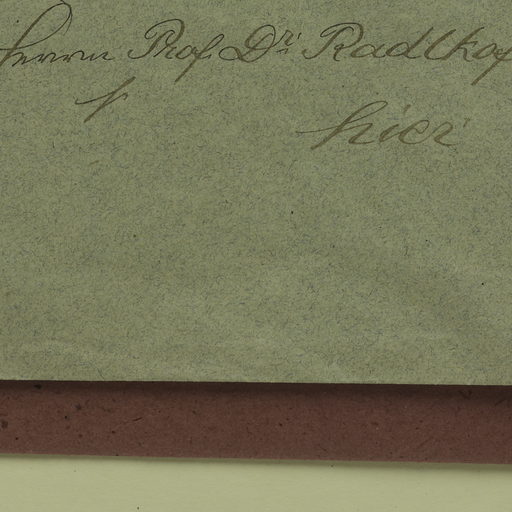 Herrn Prof. Dr. Radlkof
hier